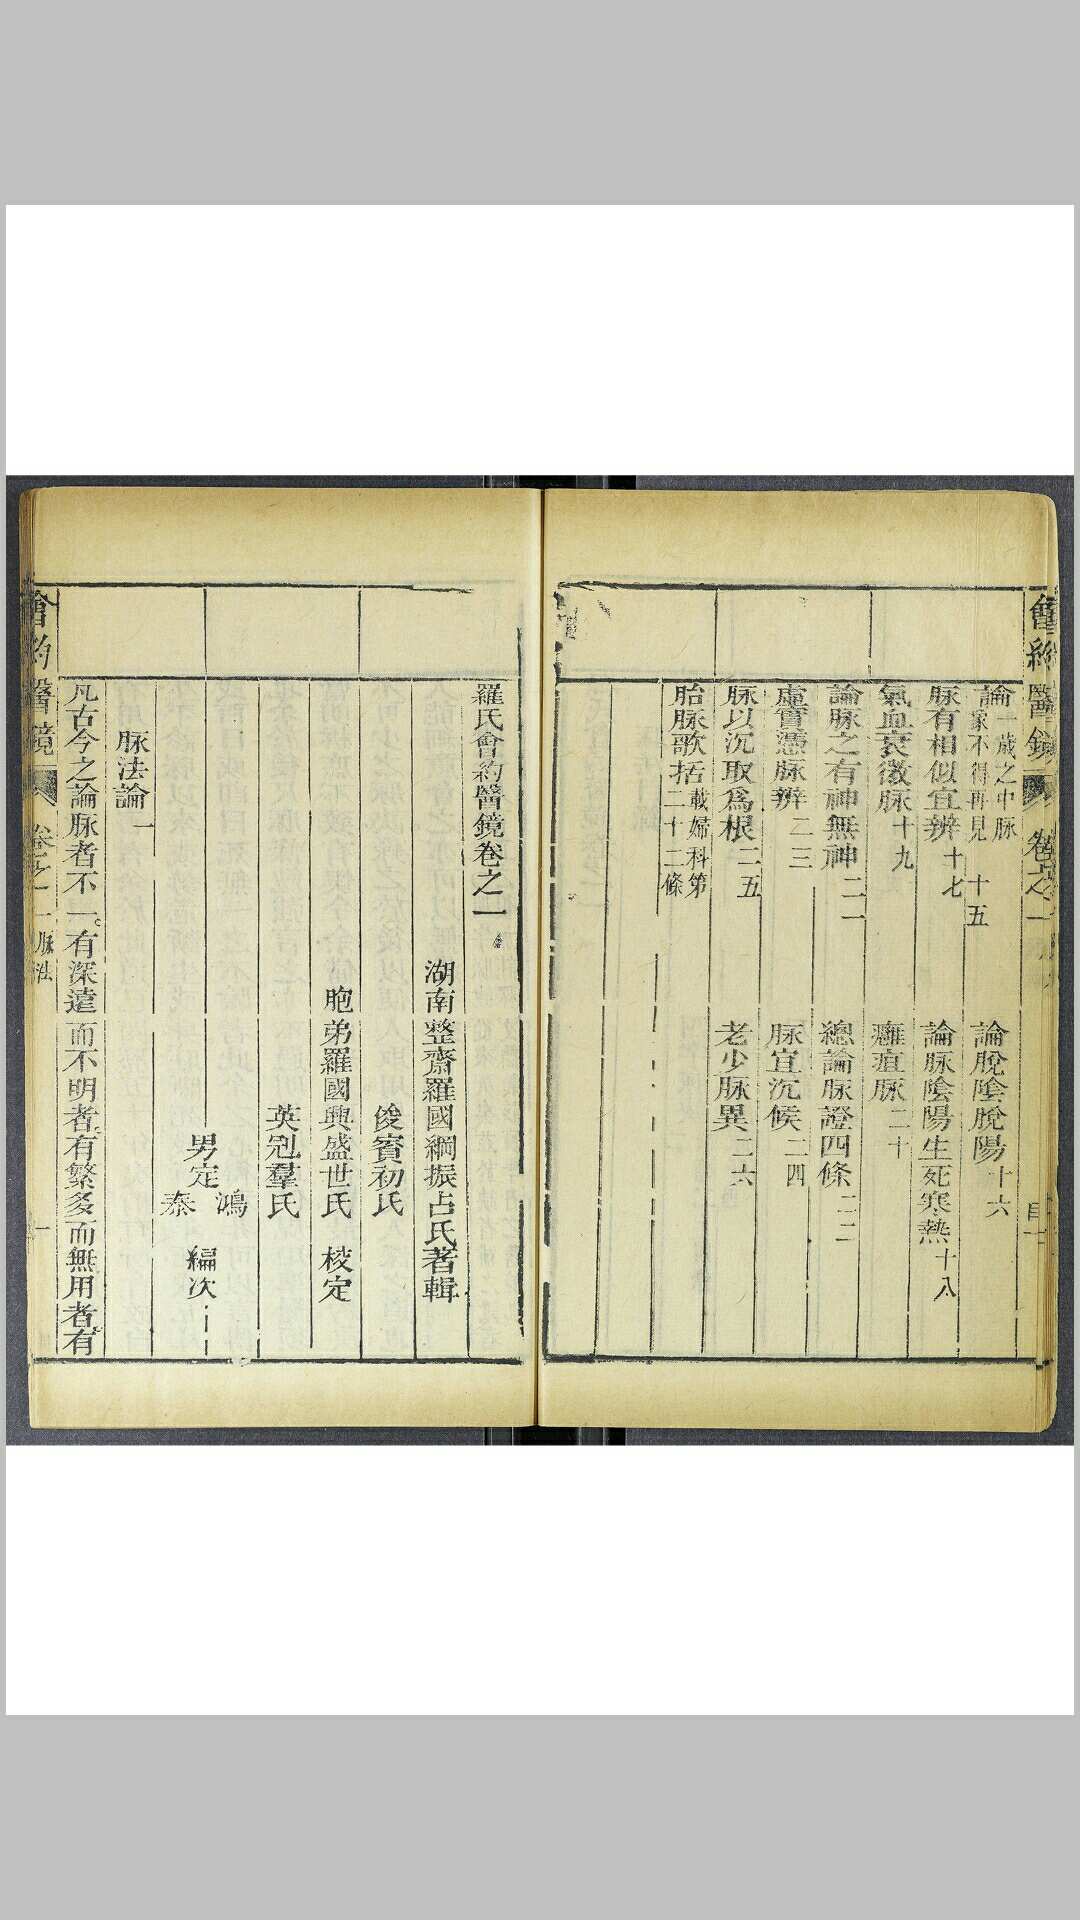 會約醫鏡 卷之一
論一歲之中脉家不得再見 十五 論脫陰脫陽十六
脉有相似宜辨十七 論脉陰陽生死寒熱十八
氣血衰徵脉十九 癰疽脉二十
論脉之有神無神二一 總論脉證四條二二
虛實憑脉辨二三 脉宜沉候二四
脉以沉取爲根二五 老少脉異二六
胎脉歌括載婦科第二十二條
羅氏會約醫鏡卷之一
湖南整齋羅國綱振占氏著輯
俊賓初氏
胞弟羅國興盛世氏 校定
英冠羣氏
鴻
男定 編次
泰
脉法論一
凡古今之論脉者不一。有深遠而不明者有繁多而無用者有
會約醫鏡 卷之一 脉法 一